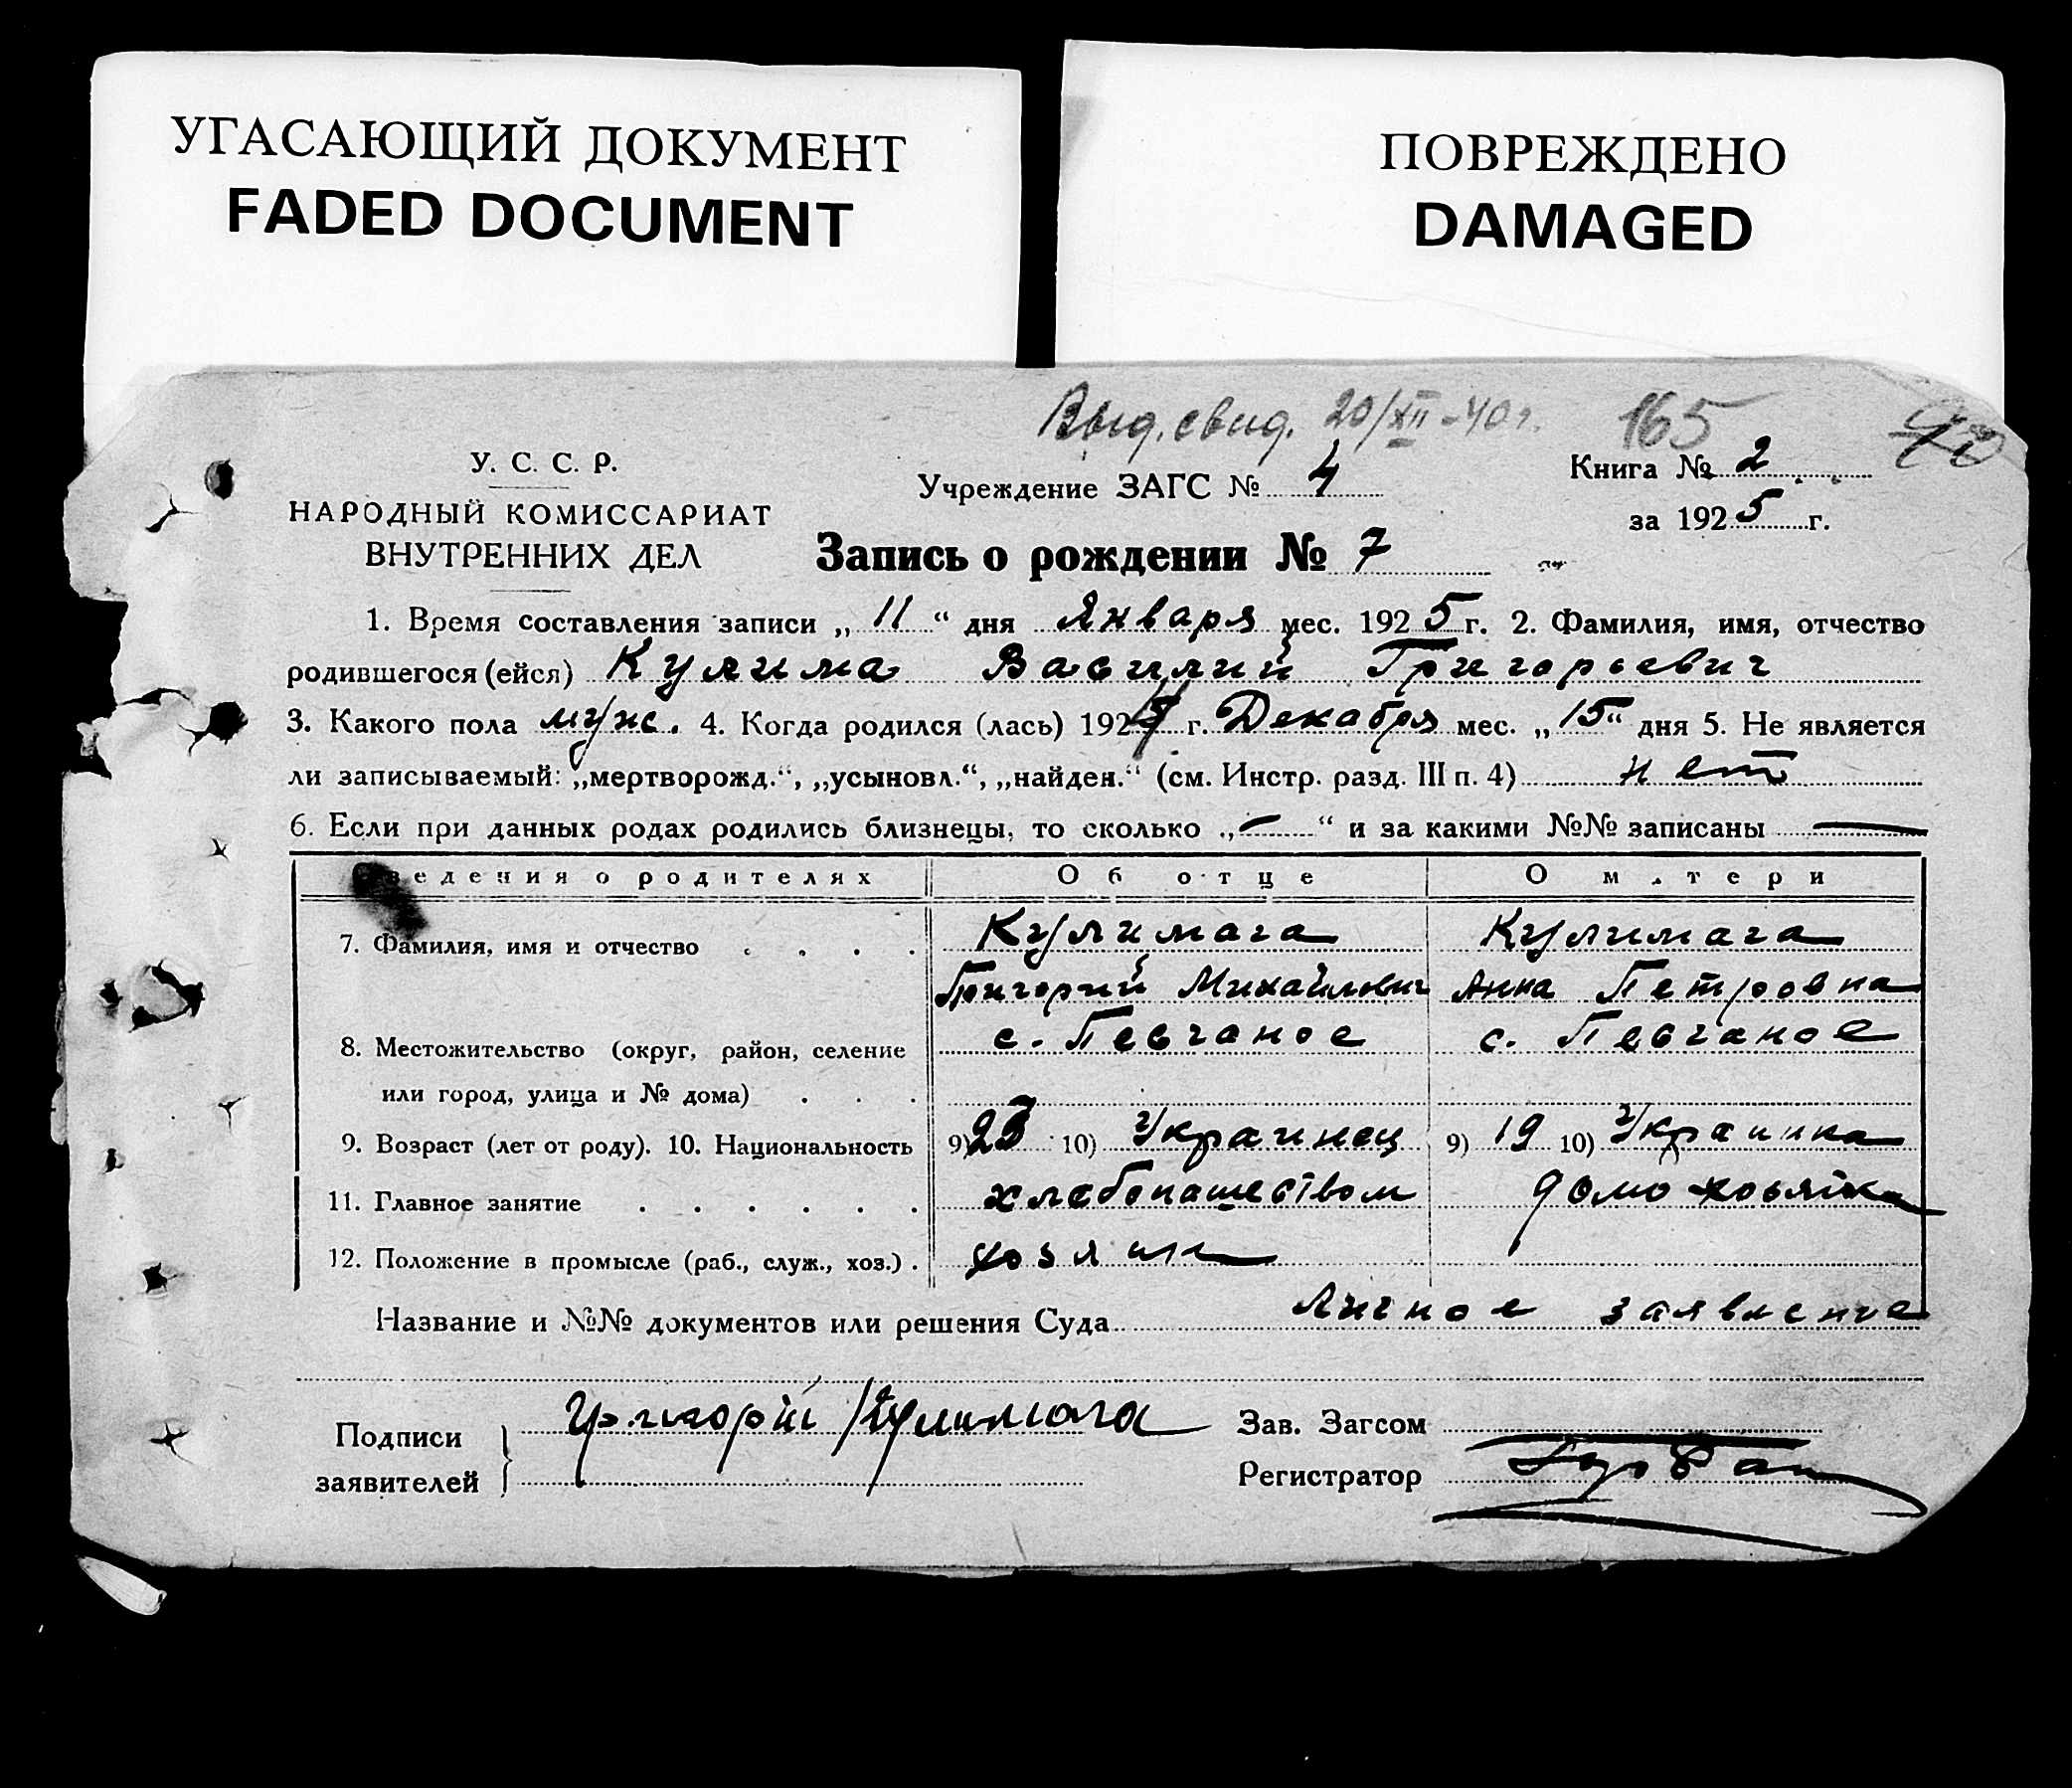 УГАСАЮЩИЙ ДОКУМЕНТ
FADED DOCUMENT
ПОВРЕЖДЕНО
DAMAGED
Выд. свид. 20/XII-40 г. 165
У. С. С. Р.
НАРОДНЫЙ КОМИССАРИАТ
ВНУТРЕННИХ ДЕЛ
Учреждение ЗАГС № 4
Книга № 2
за 1925 г.
Запись о рождении № 7
1. Время составления записи „11“ дня Января мес. 1925 г. 2. Фамилия, имя, отчество
родившегося (ейся) Кулима Василий Григорьевич
3. Какого пола муж. 4. Когда родился (лась) 1924 г. Декабря мес. „15“ дня 5. Не является
ли записываемый: „мертворожд.“, „усыновл.“, „найден.“ (см. Инстр. разд. III п. 4) нет
6. Если при данных родах родились близнецы, то сколько „—“ и за какими №№ записаны —
Сведения о родителях Об отце О матери
7. Фамилия, имя и отчество . . . . Кулимага Кулимага
Григорий Михайлович Анна Петровна
8. Местожительство (округ, район, селение с. Песчаное с. Песчаное
или город, улица и № дома) . . .
9. Возраст (лет от роду). 10. Национальность 9) 23 10) Украинец 9) 19 10) Украинка
11. Главное занятие . . . . . . хлебопашеством домохозяйка
12. Положение в промысле (раб., служ., хоз.) . хозяин
Название и №№ документов или решения Суда Личное заявление
Подписи
заявителей
Григорій Кулимага
Зав. Загсом
Регистратор Горбань